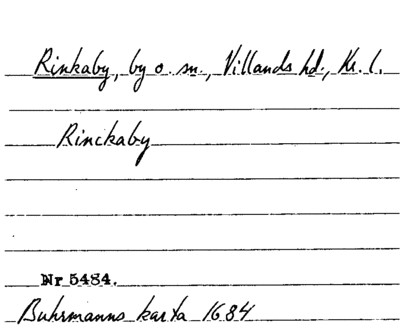 Rinkaby, by o. sn., Villands hd., Kr. l.
Rinckaby
Nr 5484.
Buhrmanns karta 1684